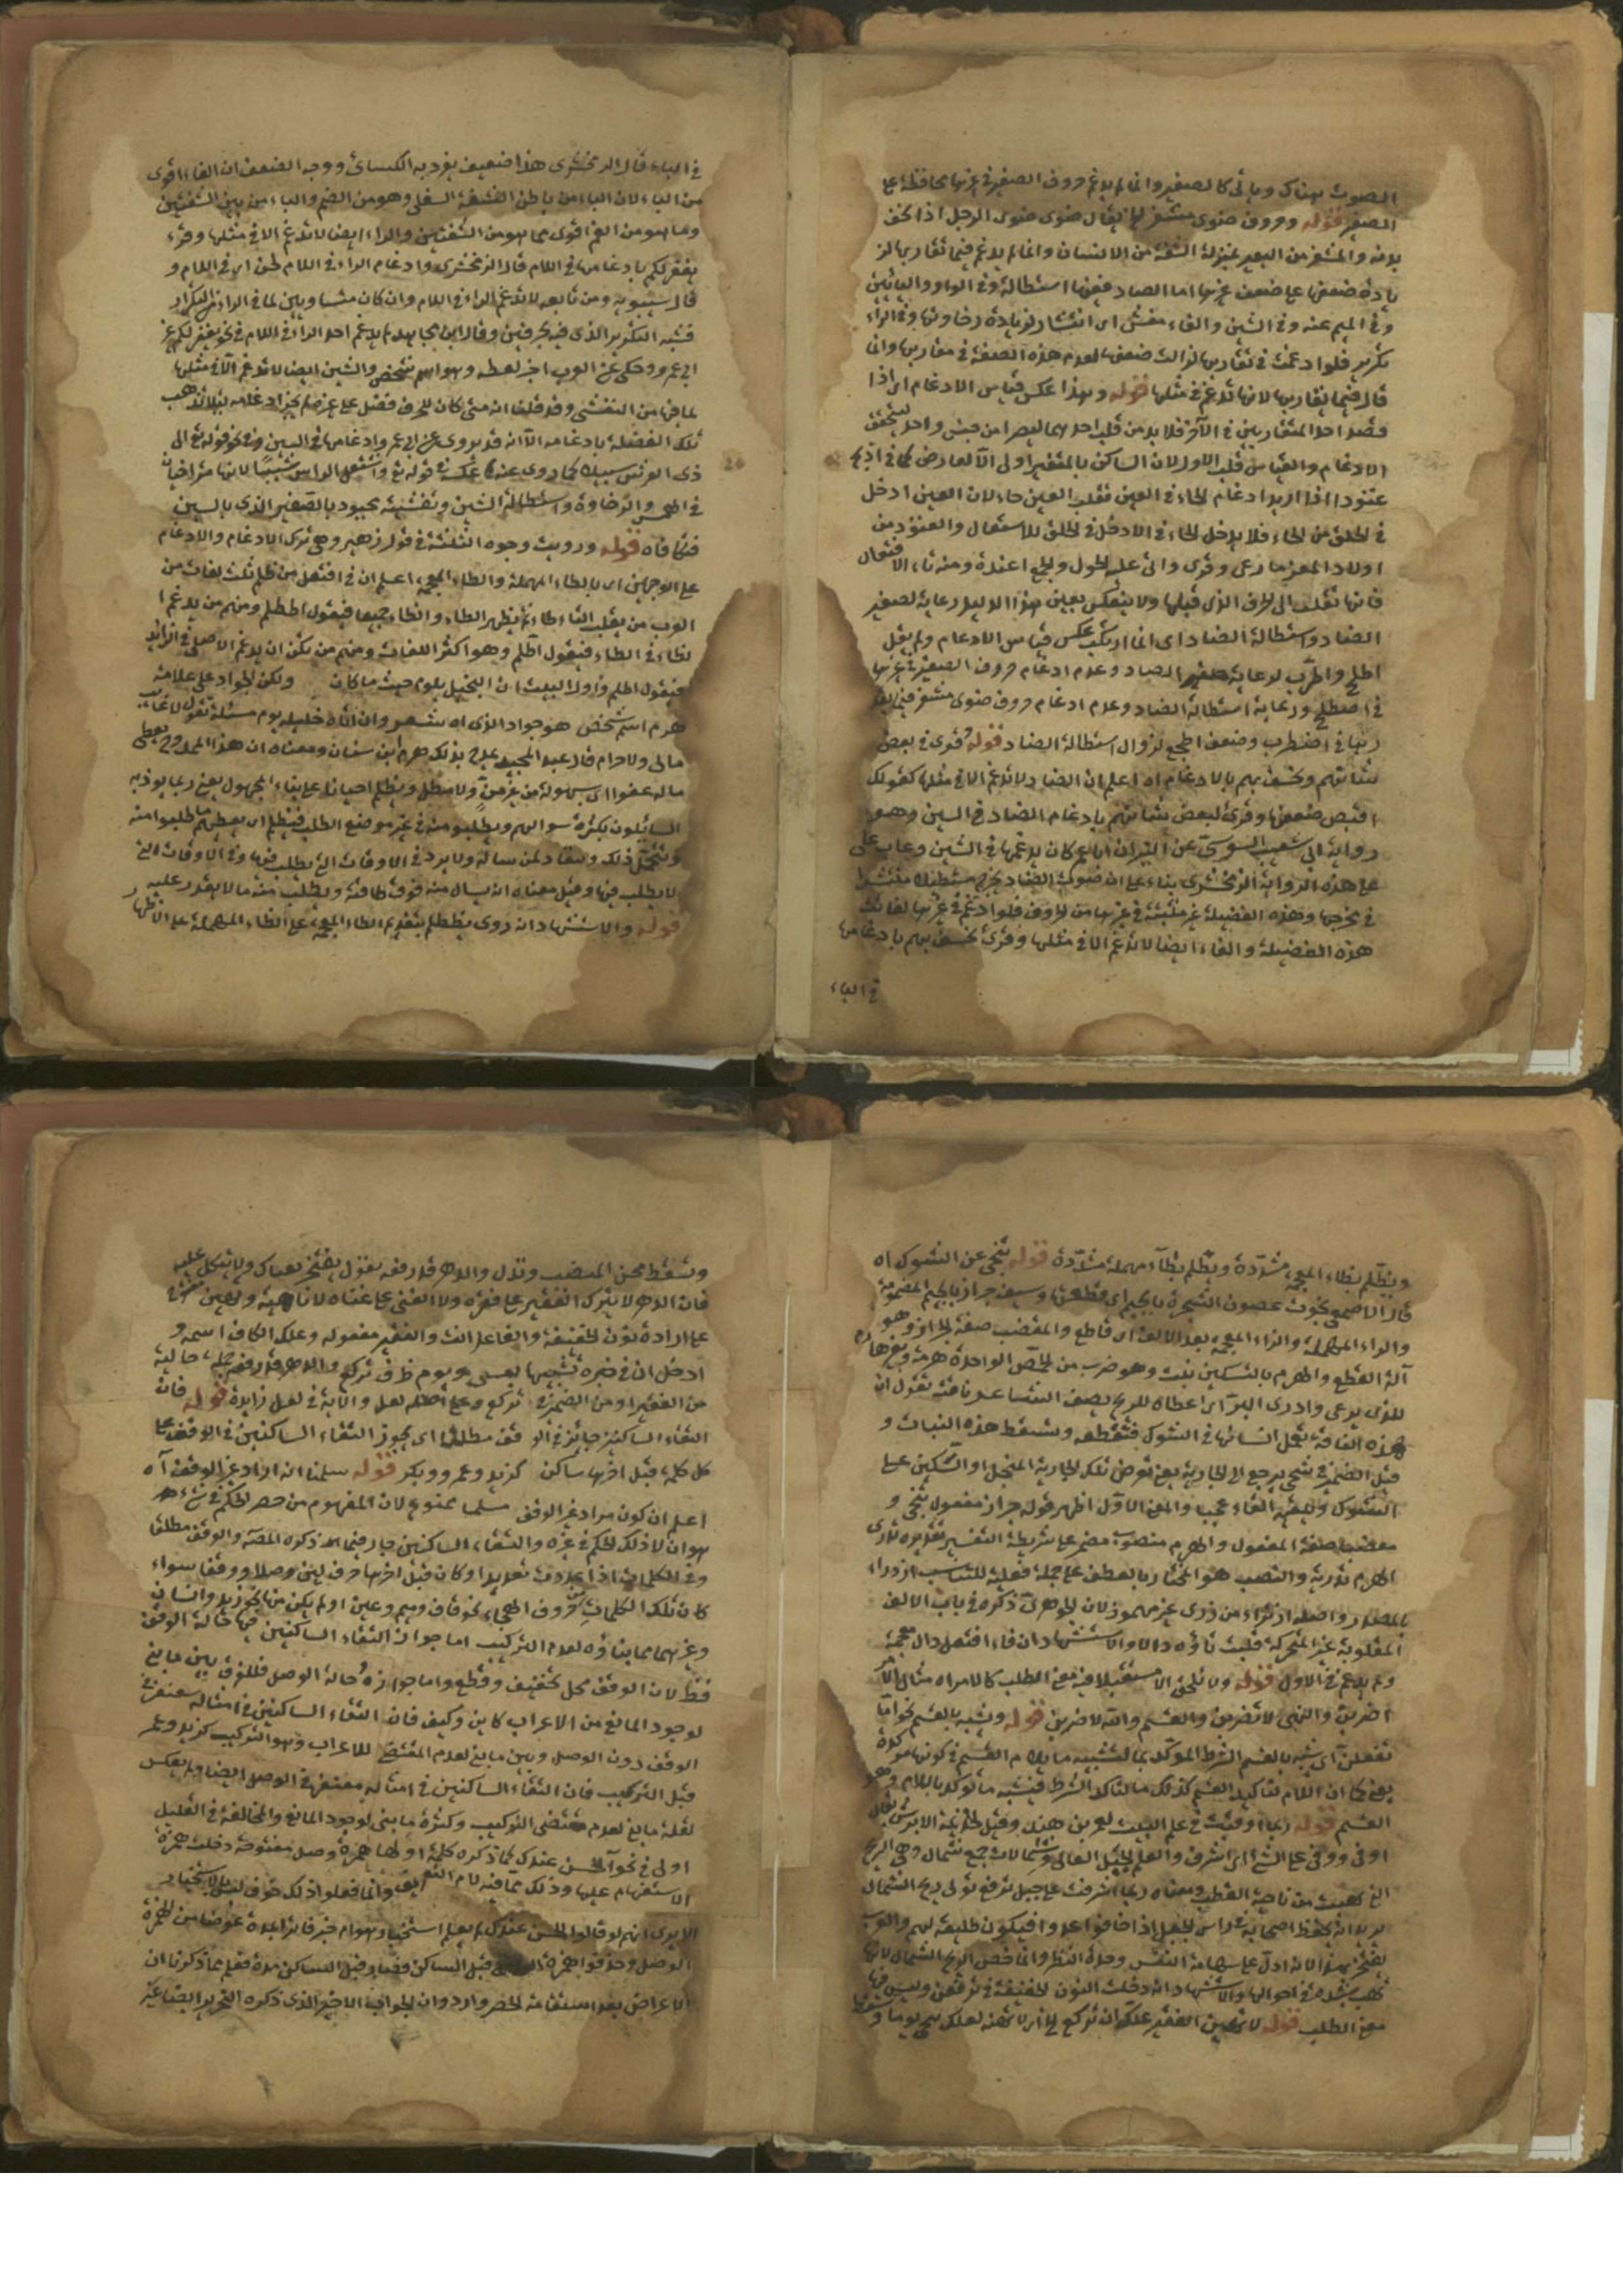 الصوت هناك وياتى كالصغير وانما لم يدغم حروف الصفير فى غيرها محافظة على
الصفير قوله وحروف ضوى مشفر لها يقال ضوى ضوى الرجل اذا نحف
بدنه والمشفر من البعير بمنزلة الشفة من الانسان وانما لم يدغم فيما تقاربها لز
يادة ضعفها على ضعف غيرها اما الضاد ففيها استطالة وفى الواو واليائين
وفى الميم غنة وفى الشين والفاء تفش اى انتشار لزيادة رخاوتها وفى الراء
تكرير فلو ادغمت فى تقاربها لزالت صفتها لعدم هذه الصفة فى مقاربها وانما
قال فيما تقاربها لانها تدغم فى مثلها قوله وبهذا عكس قياس الادغام اى اذا
قصد احد المتقاربين فى الآخر فلا بد من قلب احدهما ليصيرا من جنس واحد ليتحقق
الادغام والقياس قلب الاول لان الساكن بالتغيير اولى الا لعارض كما فى اذبح
عتودا اذا اريد ادغام الحاء فى العين فقلب العين حاء لان العين ادخل
فى الحلق من الحاء فلا يدخل الحاء فى الادخل فى الحلق للاستثقال والعتود من
اولاد المعز ما رعى وقوى واتى عليه الحول والجمع اعتدة ومنه تاء الافتعال
فانها تقلب الى الحرف الذى قبلها ولا ينعكس بعين هذا الدليل رعاية لصفير
الصاد واستطالة الضاد اى انما ارتكب عكس قياس الادغام ولم يقل
اطلح واطرب لرعاية صفير الصاد وعدم ادغام حروف الصفير فى غيرها
فى اصطلح ورعاية استطالة الضاد وعدم ادغام حروف ضوى مشفر فيما يقا
ربها فى اضطرب وضعف اطجع لزوال استطالة الضاد قوله وقرئ فى بعض
شانهم ونخسف بهم بالادغام اه اعلم ان الضاد لا تدغم الا فى مثلها كقولك
اقبض ضعفها وقرئ لبعض شانهم بادغام الضاد فى الشين وهو
رواية ابى شعيب السوسى عن اليزيدى ان ابا عمرو كان يدغمها فى الشين وعاب على
على هذه الرواية الزمخشرى بناء على ان صوت الضاد يخرج مستطيلا متفشيا
فى مخرجها وهذه الفضيلة غير مثبتة فى غيرها من الحروف فلو ادغم فى غيرها لفاتت
هذه الفضيلة والفاء ايضا لا تدغم الا فى مثلها وقرئ نخسف بهم بادغامها
فى الباء
فى الباء قال الزمخشرى هذا ضعيف تفرد به الكسائى ووجه الضعف ان الفاء اقوى
من الباء لان الفاء من باطن الشفة السفلى وهو من الفم والباء من بين الشفتين
وما هو من الفم اقوى مما هو من الشفتين والراء ايضا لا تدغم الا فى مثلها وقرئ
يغفر لكم بادغامها فى اللام قال الزمخشرى وادغام الراء فى اللام لحن اى فى اللام و
قال سيبويه ومن تابعه لا تدغم الراء فى اللام وان كان متساويين لما فى الراء من التكرار
فشبه التكرير الذى فيه بحرفين وقال ابن مجاهد لم يدغم احد الراء فى اللام فى نحو يغفر لكم غير
ابى عمرو وحكى عن العرب اجز لعطه وهو اسم شخص والشين ايضا لا تدغم الا فى مثلها
لما فيها من التفشى وقد قلنا انه متى كان للحرف فضل على غيره لم يجز ادغامه لئلا تذهب
تلك الفضلة بادغامه الا انه قد يروى عن ابى عمرو ادغامها فى السين فى نحو قوله تع الى
ذى العرش سبيلا كما روى عنه عكسه فى قوله تع واشتعل الراس شيبا لانها متراخيان
فى الهمس والرخاوة واستطالة الشين وتفشيه مجبور بالصفير الذى بالسين
فتكافاه قوله ورويت وجوه الثلثة فى قول زهير وهى ترك الادغام والادغام
على الوجهين اى بالطاء المهملة والظاء المعجمة اعلم ان فى افتعل من ظلم ثلث لغات من
العرب من يقلب التاء طاء ثم يظهر الطاء والظاء جميعا فيقول اظطلم ومنهم من يدغم ا
لظاء فى الطاء فيقول اطلم وهو اكثر اللغات ومنهم من يكره ان يدغم الاصلى فى الزائد
فيقول اظلم واول البيت ان البخيل يلوم حيث ما كان ولكن الجواد على علاته
هرم اسم شخص هو جواد الذى اه شعر وان اتاه خليل يوم مسئلة يقول لا غائب
مالى ولا حرام قال عبد المجيد يمدح بذلك هرم ابن سنان ومعناه ان هذا الممدوح يعطى
ماله عفوا اى بسهولة من غير من ولا مطل ويظلم احيانا على بناء المجهول يعنى ربما يوذيه
السائلون بكثرة سوالهم ويطلبون منه فى غير موضع الطلب فيظلم اى يعطيهم ما طلبوا منه
ويتحمل ذلك وينقاد لمن ساله ولا يرد فى الاوقات التى يطلب فيها وفى الاوقات التى
لا يطلب فيها وقيل معناه انه يسال منه فوق طاقته ويطلب منه ما لا يقدر عليه
قوله والاستشهاد انه روى يظطلم بتقديم الظاء المعجمة على الطاء المهملة على الاظهار
ويظلم بظاء المعجمة مشددة ويطلم بطاء مهملة مشددة قوله تنحى عن الشوك اه
قال الاصمعى نجوت غصون الشجرة بالجيم اى قطعتها وسيف جراز بالجيم المضمومة
والراء المهملة والزاء المعجمة بعد الالف اى قاطع والمقضب صفة لجراز وهو
آلة القطع والهرم بالتسكين نبت وهو ضرب من الحمض الواحدة هرمة
قبل الضمير فى تنحى يرجع الى الجارية يعنى تعرض تلك الجارية المنجل او السكين على
الشوك وتلقيه القاء عجيب والمعنى الاول اظهر قوله جراز مفعول تنحى و
مقضبا صفة المفعول والهرم منصوب مضمر على شريطة التفسير تقديره تذرى
الهرم تذريه والنصب هو المختار بالعطف على جملة فعلية للتناسب ازدراء
بالمصدر واصله اذتراء من ذرى غير مهموز لان الجوهرى ذكره فى باب الالف
المقلوبة غير المتحركة قلبت تاؤه دالا والاستشهاد ان فاء افتعل دال معجمة
ولم يدغم فى الاول قوله ولا تلحق الا مستقبلا فيه معنى الطلب كالامر اه مثال الامر
اضربن والنهى لا تضربن والقسم والله لاضربن قوله وشبه بالقسم نحو اما
تفعلن اى شبه بالقسم الشرط الموكد بما لتشبيه ما بلام القسم فى كونها موكدة
يعنى كما ان اللام لتاكيد القسم كذلك ما لتاكيد الشرط فشبه ما توكد باللام وهو
القسم قوله ربما اوفيت فى علم البيت لعمر بن هند وقيل لجذيمة الابرش يقال
اوفى ووفى على الشئ اى اشرف والعلم الجبل العالى وشمالات جمع شمال وهى الريح
التى تهب من ناحية القطب ومعناه ربما اشرفت على جبل ترفع ثوبى ريح الشمال
يريد انه يحفظ اصحابه فى راس الجبل اذا خافوا عدوا فيكون طليعة لهم والعرب
تفتخر بهذا لانه ادل على شهامة النفس وحدة النظر وانما خص الريح الشمال لانها
تهب بشدة فى احوالها والاستشهاد انه دخلت النون الخفيفة فى ترفعن وليس فيها
معنى الطلب قوله لا تهين الفقير علك ان تركع الخ اى لا تهينه لعلك تنحى يوما و
وتسقط من المنصب وتذل والدهر قد رفعه يقول
فان الدهر لا يترك الفقير على فقره ولا الغنى على غناه لا ناهية وتهين
على ارادة نون الخفيفة والفاعل انت والفقير مفعوله وعلك الكاف اسمه و
ادخل ان فى خبره تشبيها بعسى ويوم ظرف تركع والدهر قد رفعه جملة حالية
من الفقير او من الضمير فى تركع وعل اصله لعل واللام فى لعل زايدة قوله فان
التقاء الساكنين جائز فى الوقف مطلقا اى يجوز التقاء الساكنين فى الوقف على
كل كلمة قبل اخرها ساكن كزيد وعمرو وبكر قوله سلمنا انه اراد غير الوقف اه
اعلم ان كون مراد غير الوقف مسلما ممنوع لان المفهوم من حصر الحكم فى شئ
هو ان لا ذلك الحكم فى غيره والتقاء الساكنين جار فيما ذكره المص والوقف مطلقا
وفى الكلمات اذا عددت تعديدا وكان قبل اخرها حرف لين وصلا ووقفا سواء
كان تلك الكلمات من حروف الهجاء نحو قاف وميم وعين او لم يكن منها نحو زيد وانسان
وغيرهما مما بناؤه لعدم التركيب اما جواز التقاء الساكنين فيها حالة الوقف
فقط لان الوقف محل تخفيف وقطع واما جوازه حالة الوصل فللفرق بين ما بنى
لوجود المانع من الاعراب كاين وكيف فان التقاء الساكنين فى امثاله مغتفر فى
الوقف دون الوصل وبين ما بنى لعدم المقتضى للاعراب وهو التركيب كزيد وعمر
قبل التركيب فان التقاء الساكنين فى امثاله مغتفر فى الوصل ايضا ولم يعكس
لقلة ما بنى لعدم مقتضى التركيب وكثرة ما بنى لوجود المانع والمخالفة فى القليل
اولى فى نحو آلحسن عندك مما ذكره كلمة اولها همزة وصل مفتوحة دخلت همزة
الاستفهام عليها وذلك مما فيه لام التعريف وانما فعلوا ذلك خوف لبس بالاستخبار
الا يرى انهم لو قالوا الحسن عندك لم يعلم استخبار هو ام خبر فاتوا بالمدة عوضا من همزة
الوصل وحذفوا همزة قبل الساكن
الاعراض بعد استقامة الحصر وارد وان الجواب الاخير الذى ذكره التحرير ايضا غير